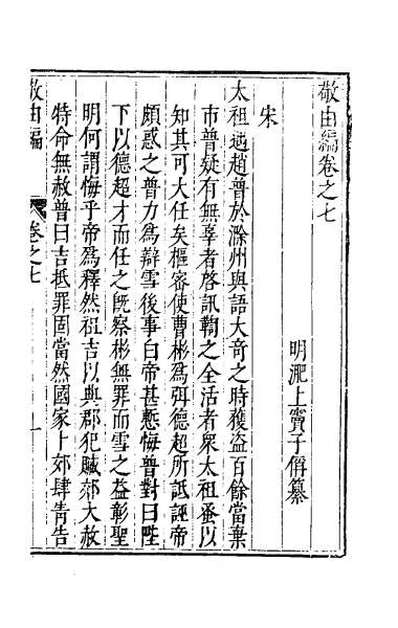 敬由編卷之七
明淝上竇子偁纂
宋
太祖遇趙普於滁州與語大奇之時獲盜百餘當棄
市普疑有無辜者啓訊鞫之全活者衆太祖蚤以
知其可大任矣樞密使曹彬爲弭德超所詆誣帝
頗惑之普力爲辯雪後事白帝甚慙悔普對曰陛
下以德超才而任之旣察彬無罪而雪之益彰聖
明何謂悔乎帝爲釋然祖吉以典郡犯贓郊大赦
特命無赦普曰吉抵罪固當然國家卜郊肆眚告
敬由編
卷之七
一